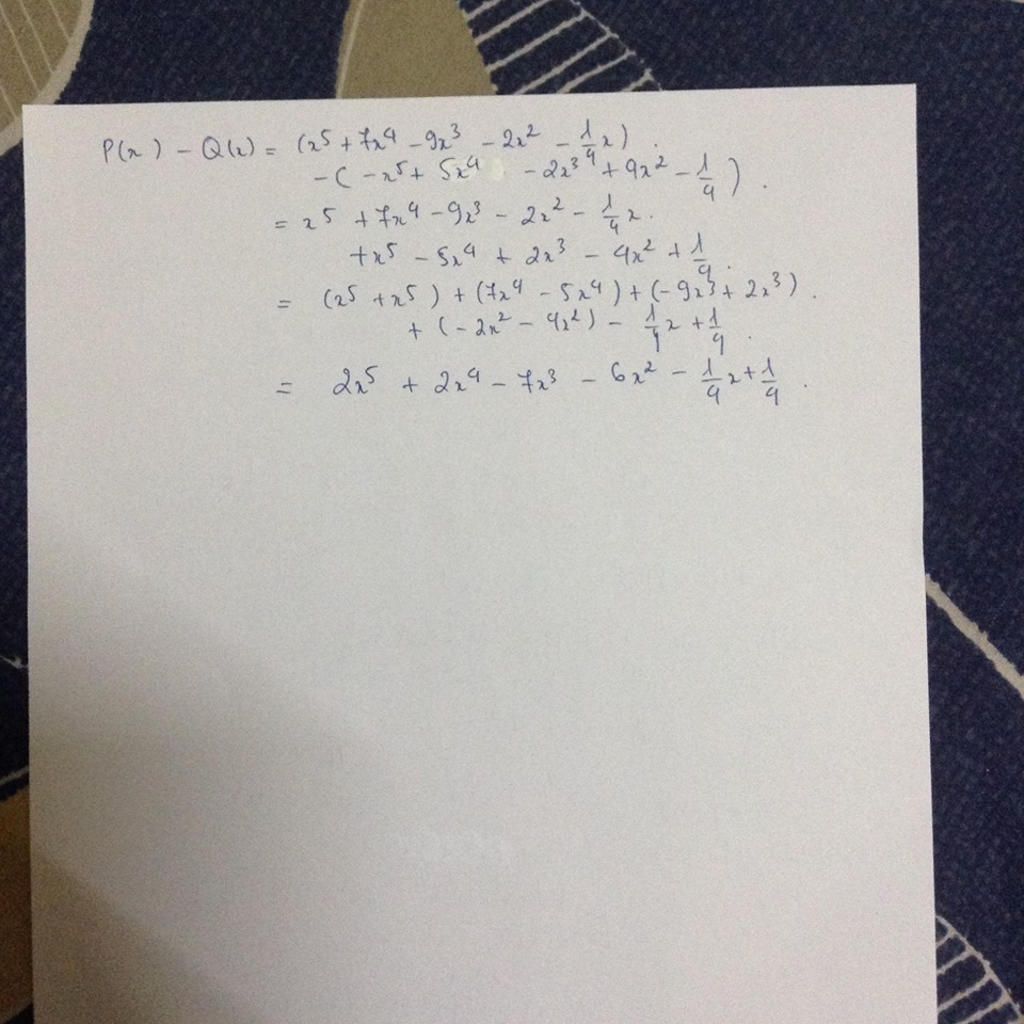 P(x) - Q(x) = (x⁵ + 7x⁴ - 9x³ - 2x² - 1/4 x).
- ( - x⁵ + 5x⁴ - 2x³ + 4x² - 1/4 ).
= x⁵ + 7x⁴ - 9x³ - 2x² - 1/4 x.
+ x⁵ - 5x⁴ + 2x³ - 4x² + 1/4.
= (x⁵ + x⁵) + (7x⁴ - 5x⁴) + (- 9x³ + 2x³).
+ (- 2x² - 4x²) - 1/4 x + 1/4.
= 2x⁵ + 2x⁴ - 7x³ - 6x² - 1/4 x + 1/4.